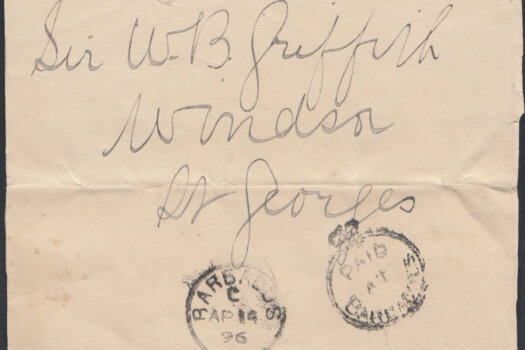 Sir W.B. Griffith
Windsor
St Georges
BARBADOS
C
AP 14
96
PAID
AT
BARBADOS